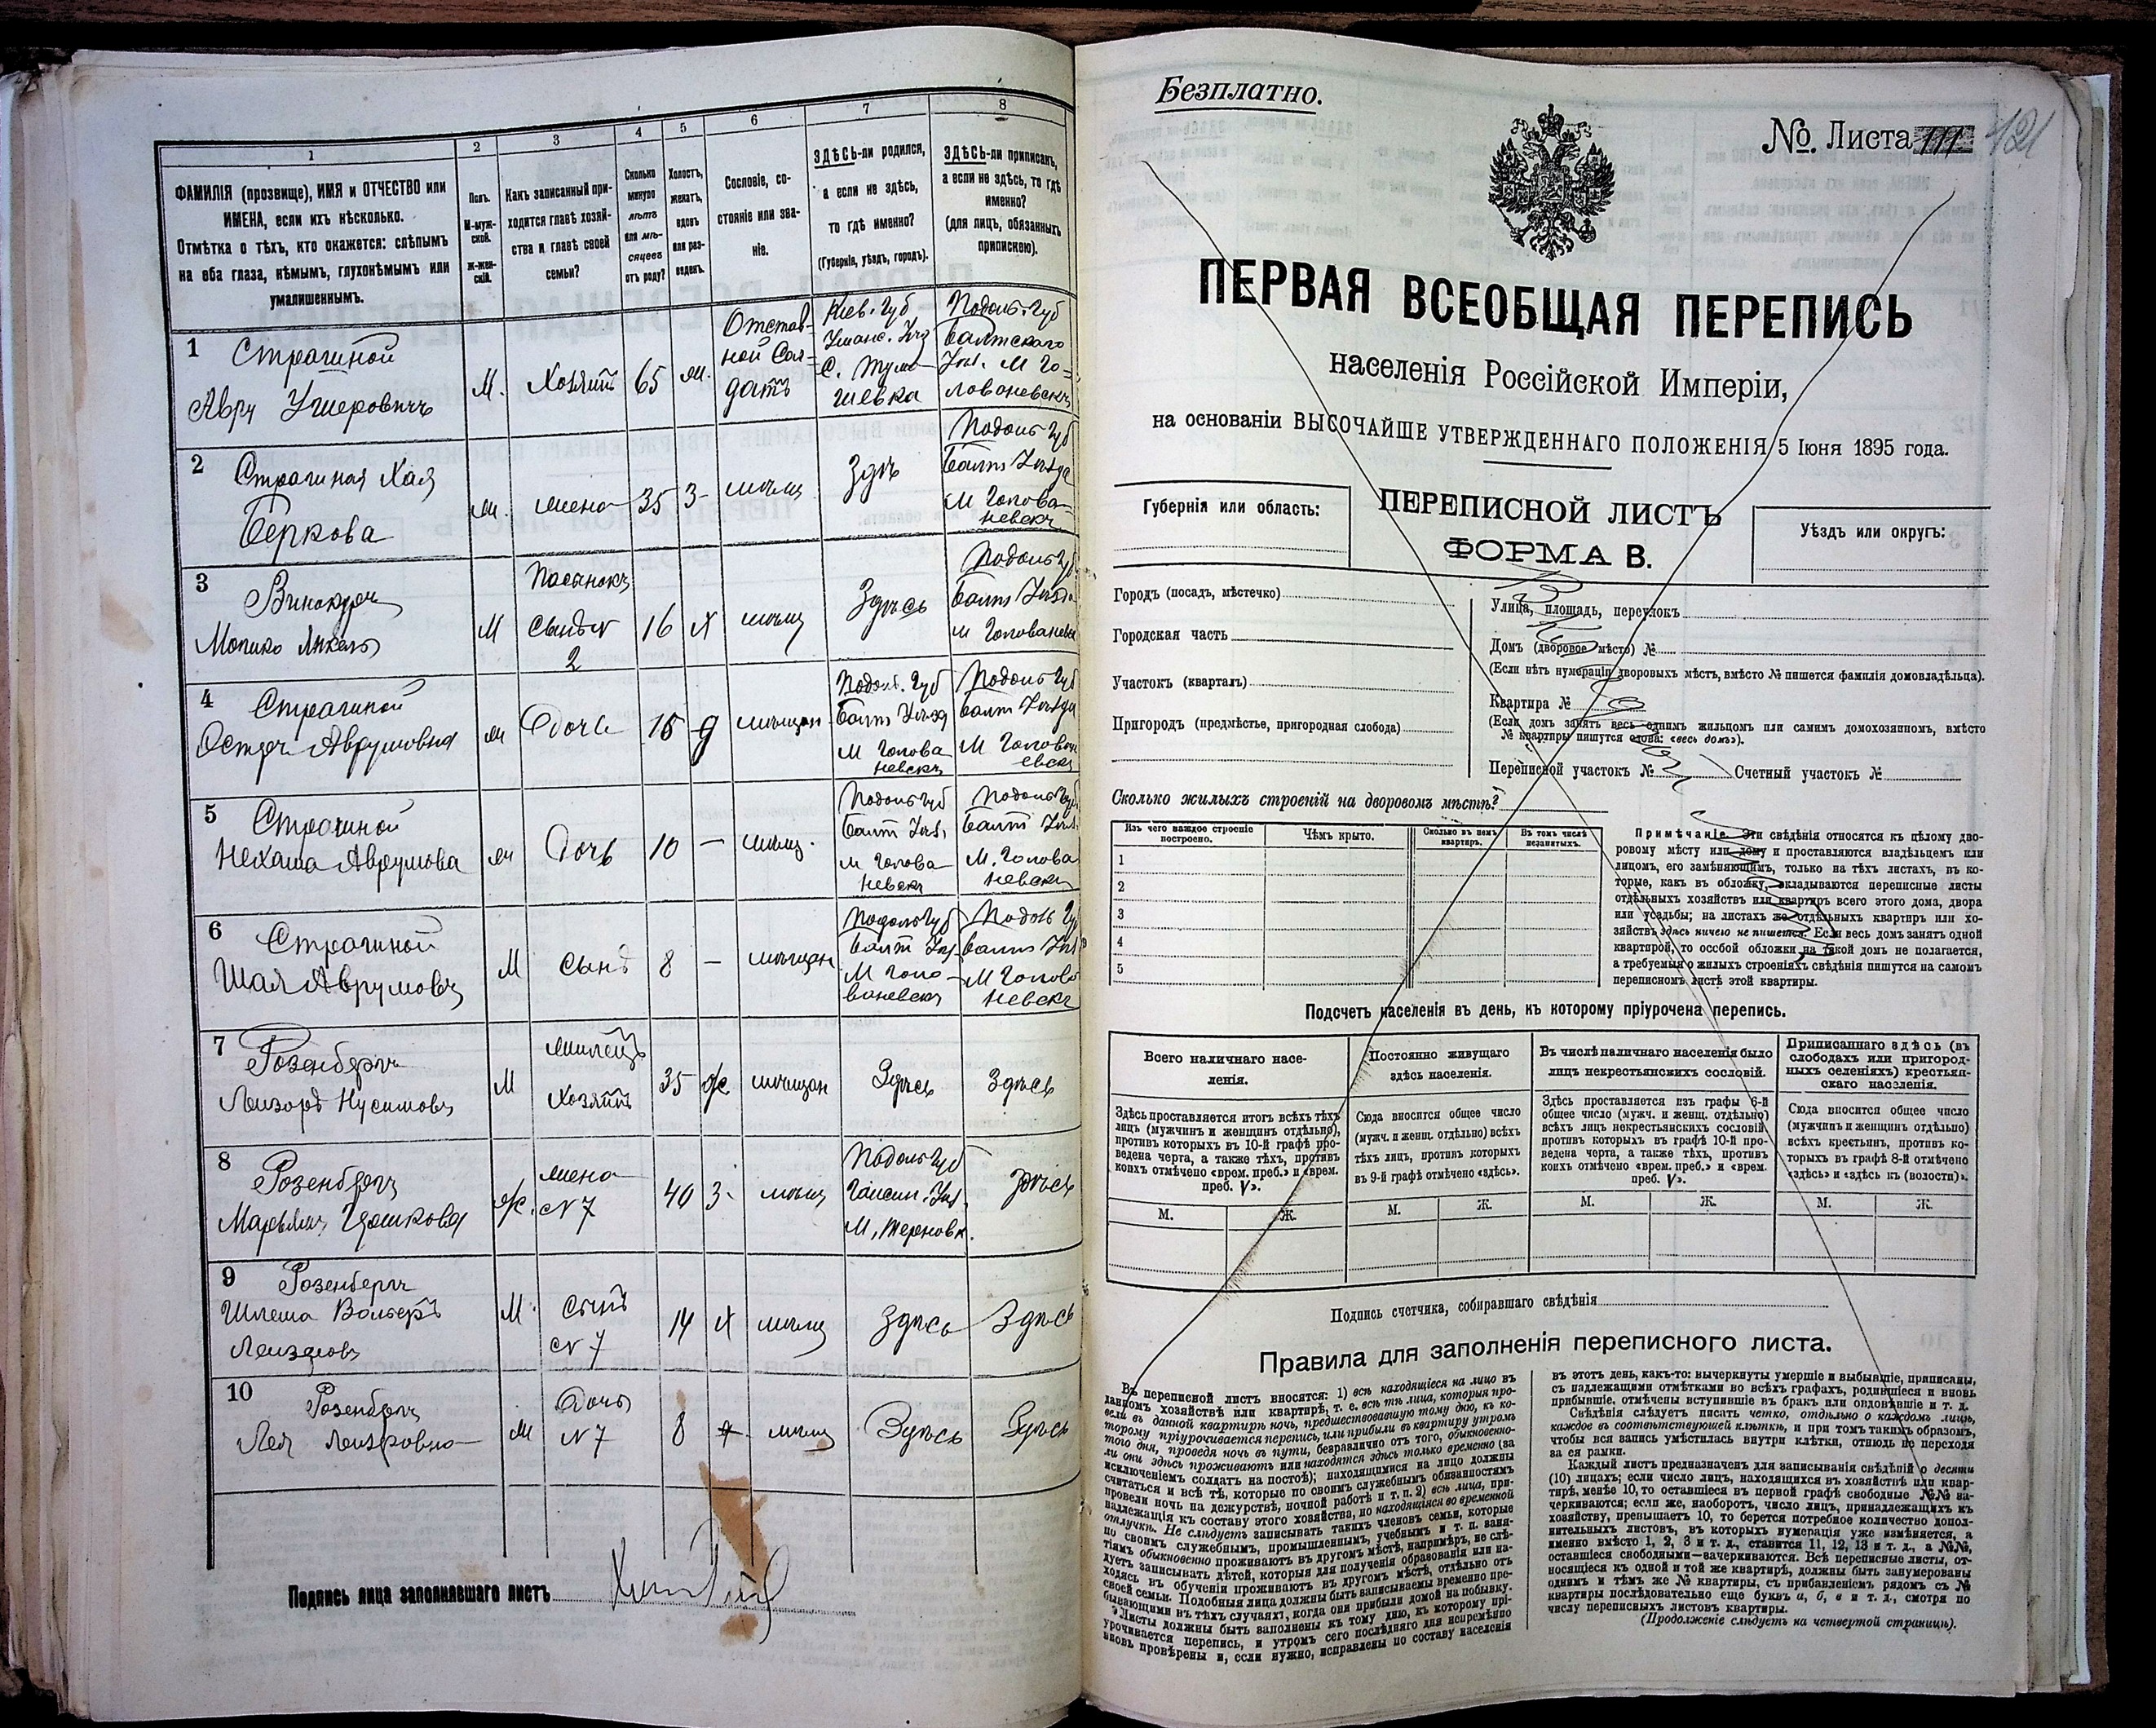 1
2
3
4
5
6
7
8
ФАМИЛІЯ (прозвище), ИМЯ и ОТЧЕСТВО или
ИМЕНА, если ихъ нѣсколько.
Отмѣтка о тѣхъ, кто окажется: слѣпымъ
на оба глаза, нѣмымъ, глухонѣмымъ или
умалишеннымъ.
Полъ.
М-муж-
ской.
Ж-жен-
скій.
Какъ записанный при-
ходится главѣ хозяй-
ства и главѣ своей
семьи?
Сколько
минуло
лѣтъ
или мѣ-
сяцевъ
отъ роду?
Холостъ,
женатъ,
вдовъ
или раз-
веденъ.
Сословіе, со-
стояніе или зва-
ніе.
ЗДѢСЬ-ли родился,
а если не здѣсь,
то гдѣ именно?
(Губернія, уѣздъ, городъ).
ЗДѢСЬ-ли приписанъ,
а если не здѣсь, то гдѣ
именно?
(для лицъ, обязанныхъ
припискою).
1
Страшной
М.
65
м.
Отстав-
ной Сол-
датъ
Кіев. Губ
Подоль. Губ
Балтскаго
2
Хая
Беркова
м.
жена
35
3-
Подоль Губ
Балт
м Голова-
невскъ
3
М
16
Х
Здѣсь
Подоль Губ
м Голованевск
2
4
м
Дочь
мѣщан
Подол. Губ
м Голова
невскъ
Подоль Губ
5
Аврумова
м
Дочь
10
—
Подоль Губ
м Голова-
невскъ
Подоль Губ
М. Голова
невскъ
6
Шая Аврумовъ
М
сынъ
8
—
мѣщан
Подоль Губ
М Голо-
ваневскъ
М Голова
невскъ
7
Розенбергъ
М
Жилецъ
Хозяинъ
35
ж
мѣщан
Здѣсь
Здѣсь
8
Розенбергъ
ж.
жена
№ 7
40
3-
Подоль Губ
М. Терновк.
Здѣсь
9
Розенбергъ
М.
Сынъ
№ 7
14
Х
Здѣсь
Здѣсь
10
Розенбергъ
Лея
м
Дочь
№ 7
8
Здѣсь
Здѣсь
Подпись лица заполнявшаго листъ
Безплатно.
№ Листа 111 421
ПЕРВАЯ ВСЕОБЩАЯ ПЕРЕПИСЬ
населенія Россійской Имперіи,
на основаніи ВЫСОЧАЙШЕ УТВЕРЖДЕННАГО ПОЛОЖЕНІЯ 5 Іюня 1895 года.
Губернія или область:
ПЕРЕПИСНОЙ ЛИСТЪ
ФОРМА В.
Уѣздъ или округъ:
Городъ (посадъ, мѣстечко)
Городская часть
Участокъ (кварталъ)
Пригородъ (предмѣстье, пригородная слобода)
Улица, площадь, переулокъ
Домъ (дворовое мѣсто) №
(Если нѣтъ нумераціи дворовыхъ мѣстъ, вмѣсто № пишется фамилія домовладѣльца).
Квартира №
(Если домъ занятъ весь однимъ жильцомъ или самимъ домохозяиномъ, вмѣсто
№ квартиры пишутся слова: «весь домъ»).
Переписной участокъ № Счетный участокъ №
Сколько жилыхъ строеній на дворовомъ мѣстѣ?
Изъ чего каждое строеніе
построено.
Чѣмъ крыто.
Сколько въ немъ
квартиръ.
Въ томъ числѣ
незанятыхъ.
1
2
3
4
5
Примѣчаніе. Эти свѣдѣнія относятся къ цѣлому дво-
ровому мѣсту или дому и проставляются владѣльцемъ или
лицомъ, его замѣняющимъ, только на тѣхъ листахъ, въ ко-
торые, какъ въ обложку, вкладываются переписные листы
отдѣльныхъ хозяйствъ или квартиръ всего этого дома, двора
или усадьбы; на листахъ же отдѣльныхъ квартиръ или хо-
зяйствъ здѣсь ничего не пишется. Если весь домъ занятъ одной
квартирой, то особой обложки на такой домъ не полагается,
а требуемыя о жилыхъ строеніяхъ свѣдѣнія пишутся на самомъ
переписномъ листѣ этой квартиры.
Подсчетъ населенія въ день, къ которому пріурочена перепись.
Всего наличнаго насе-
ленія.
Постоянно живущаго
здѣсь населенія.
Въ числѣ наличнаго населенія было
лицъ некрестьянскихъ сословій.
Приписаннаго здѣсь (въ
слободахъ или пригород-
ныхъ селеніяхъ) крестьян-
скаго населенія.
Здѣсь проставляется итогъ всѣхъ тѣхъ
лицъ (мужчинъ и женщинъ отдѣльно),
противъ которыхъ въ 10-й графѣ про-
ведена черта, а также тѣхъ, противъ
коихъ отмѣчено «врем. преб.» и «врем.
преб. V».
Сюда вносится общее число
(мужч. и женщ. отдѣльно) всѣхъ
тѣхъ лицъ, противъ которыхъ
въ 9-й графѣ отмѣчено «здѣсь».
Здѣсь проставляется изъ графы 6-й
общее число (мужч. и женщ. отдѣльно)
всѣхъ лицъ некрестьянскихъ сословій
противъ которыхъ въ графѣ 10-й про-
ведена черта, а также тѣхъ, противъ
коихъ отмѣчено «врем. преб.» и «врем.
преб. V».
Сюда вносится общее число
(мужчинъ и женщинъ отдѣльно)
всѣхъ крестьянъ, противъ ко-
торыхъ въ графѣ 8-й отмѣчено
«здѣсь» и «здѣсь къ (волости)».
М. Ж. М. Ж. М. Ж. М. Ж.
Подпись счетчика, собиравшаго свѣдѣнія
Правила для заполненія переписного листа.
Въ переписной листъ вносятся: 1) всѣ находящіеся на лицо въ
данномъ хозяйствѣ или квартирѣ, т. е. всѣ тѣ лица, которыя про-
вели въ данной квартирѣ ночь, предшествовавшую тому дню, къ ко-
торому пріурочивается перепись, или прибыли въ квартиру утромъ
того дня, проведя ночь въ пути, безразлично отъ того, обыкновенно-
ли они здѣсь проживаютъ или находятся здѣсь только временно (за
исключеніемъ солдатъ на постоѣ); находящимися на лицо должны
считаться и всѣ тѣ, которые по своимъ служебнымъ обязанностямъ
провели ночь на дежурствѣ, ночной работѣ и т. п. 2) всѣ лица, при-
надлежащія къ составу этого хозяйства, но находящіяся во временной
отлучкѣ. Не слѣдуетъ записывать такихъ членовъ семьи, которые
по своимъ служебнымъ, промышленнымъ, учебнымъ и т. п. заня-
тіямъ обыкновенно проживаютъ въ другомъ мѣстѣ, напримѣръ, не слѣ-
дуетъ записывать дѣтей, которыя для полученія образованія или на-
ходясь въ обученіи проживаютъ въ другомъ мѣстѣ, отдѣльно отъ
своей семьи. Подобныя лица должны быть записываемы временно пре-
бывающими въ тѣхъ случаяхъ, когда они прибыли домой на побывку.
Листы должны быть заполнены къ тому дню, къ которому прі-
урочивается перепись, и утромъ сего послѣдняго дня непремѣнно
вновь провѣрены и, если нужно, исправлены по составу населенія
въ этотъ день, какъ-то: вычеркнуты умершіе и выбывшіе, приписаны,
съ надлежащими отмѣтками во всѣхъ графахъ, родившіеся и вновь
прибывшіе, отмѣчены вступившіе въ бракъ или овдовѣвшіе и т. д.
Свѣдѣнія слѣдуетъ писать четко, отдѣльно о каждомъ лицѣ,
каждое въ соотвѣтствующей клѣткѣ, и при томъ такимъ образомъ,
чтобы вся запись умѣстилась внутри клѣтки, отнюдь не переходя
за ея рамки.
Каждый листъ предназначенъ для записыванія свѣдѣній о десяти
(10) лицахъ; если число лицъ, находящихся въ хозяйствѣ или квар-
тирѣ, менѣе 10, то оставшіеся въ первой графѣ свободные №№ за-
черкиваются; если же, наоборотъ, число лицъ, принадлежащихъ къ
хозяйству, превышаетъ 10, то берется потребное количество допол-
нительныхъ листовъ, въ которыхъ нумерація уже измѣняется, а
именно вмѣсто 1, 2, 3 и т. д., ставится 11, 12, 13 и т. д., а №№,
оставшіеся свободными—зачеркиваются. Всѣ переписные листы, от-
носящіеся къ одной и той же квартирѣ, должны быть занумерованы
однимъ и тѣмъ же № квартиры, съ прибавленіемъ рядомъ съ №
квартиры послѣдовательно еще буквъ а, б, в и т. д., смотря по
числу переписныхъ листовъ квартиры.
(Продолженіе слѣдуетъ на четвертой страницѣ).